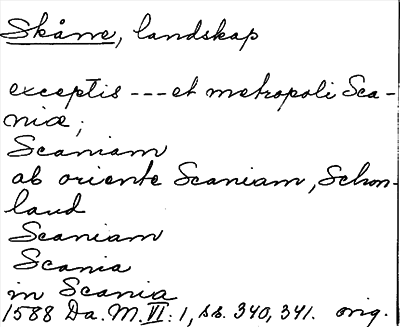 Skåne, landskap
exceptis --- et metropoli Sca-
niæ;
Scaniam
ab oriente Scaniam, Schon-
land
Scaniam
Scania
in Scania
1588 Da. M. VI: 1, ss. 340, 341. orig.